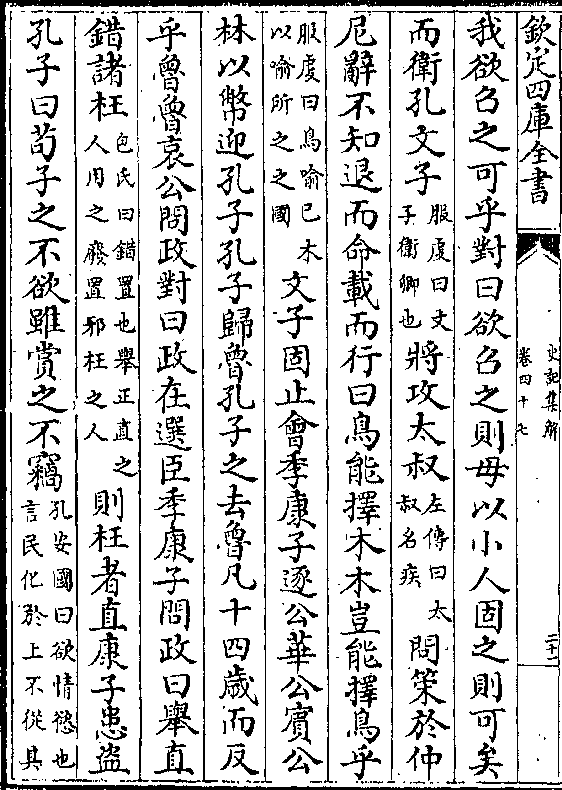 欽定四庫全書
史記集解
卷四十七
二十一
我欲召之可乎對曰欲召之則毋以小人固之則可矣
而衛孔文子服虔曰文子衛卿也將攻太叔左傳曰太叔名疾問策於仲
尼辭不知退而命載而行曰鳥能擇木木豈能擇鳥乎
服虔曰鳥喻己木以喻所之之國文子固止會季康子逐公華公賓公
林以幣迎孔子孔子歸魯孔子之去魯凡十四歲而反
乎魯魯哀公問政對曰政在選臣季康子問政曰舉直
錯諸枉包氏曰錯置也舉正直之人用之廢置邪枉之人則枉者直康子患盗
孔子曰苟子之不欲雖賞之不竊孔安國曰欲情慾也言民化於上不從其